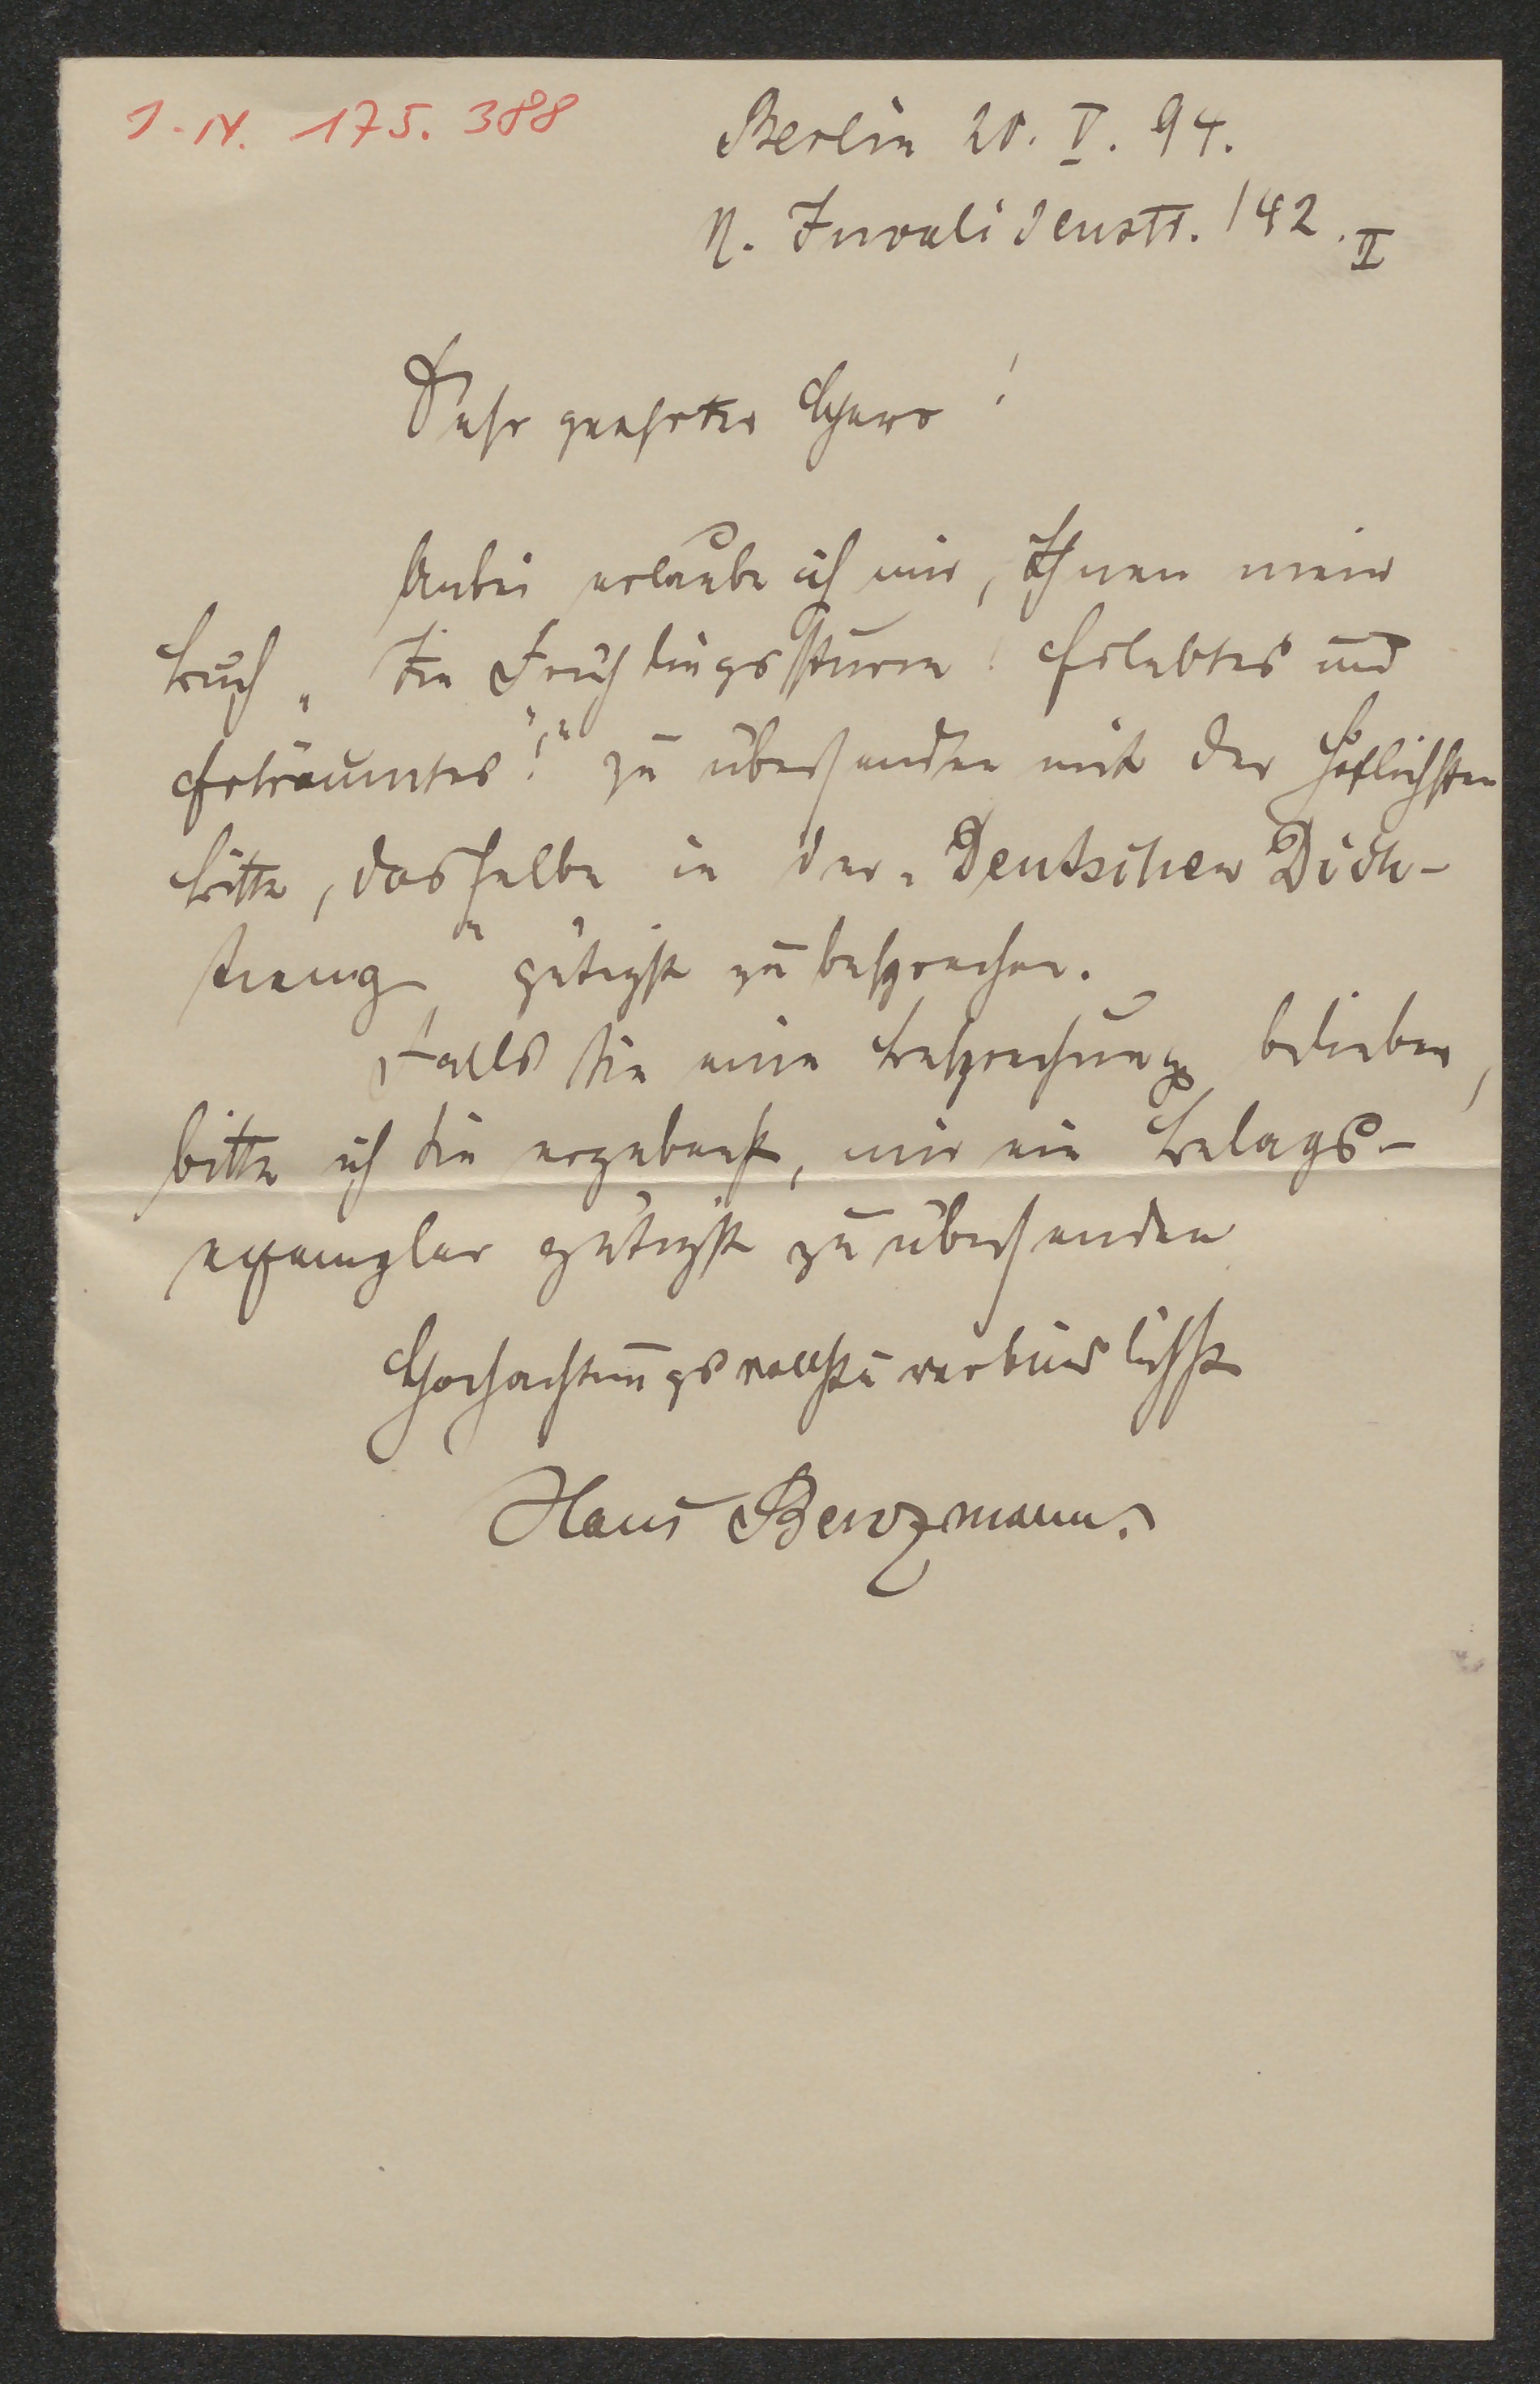 I.N. 175.388
Berlin 20. V. 94.
N. Invalidenstr. 142. II
Sehr geehrter Herr!
Anbei erlaube ich mir, Ihnen mein
Buch „Im Frühlingssturm! Erlebtes und
Erträumtes!“ zu übersenden mit der höflichsten
Bitte, dasselbe in der „Deutschen Dich-
tung“ gütigst zu besprechen.
Falls Sie eine Besprechung belieben,
bitte ich Sie ergebenst, mir ein Belags-
exemplar gütigst zu übersenden
Hochachtungsvollst u verbindlichst
Hans Benzmann.